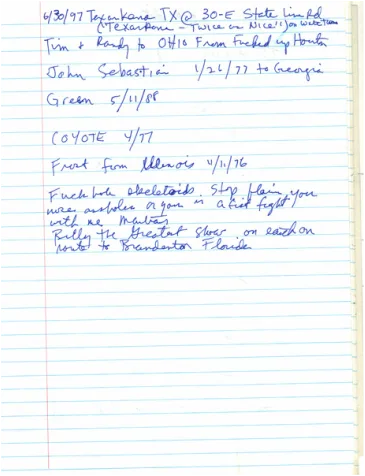 6/30/97 Texarkana TX @ 30-E State Line Rd
("Texarkana - Twice as Nice"!)
Tim & Randy to OHIO From Fucked up Houston
John Sebastian 1/26/77 to Georgia
Green 5/11/88
COYOTE 4/77
Frost from Illinois 4/11/76
Fuck hole Stop you
assholes or your in a fist fight
with me
Billy the Greatest on earth on
route to Bradenton Florida